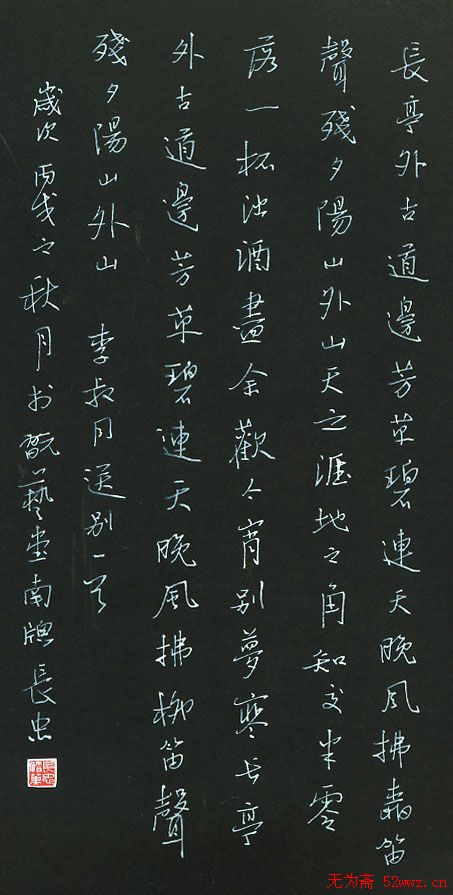 長亭外古道邊芳草碧連天晚風拂笛
聲殘夕陽山外山天之涯地之角知交半零
落一杯浊酒盡余歡今宵别夢寒长亭
外古道邊芳草碧連天晚風拂柳笛聲
殘夕陽山外山 李叔同送别一首
歲次丙戌之秋月於翫藝堂南牕長忠
无为斋 52wwz.cn